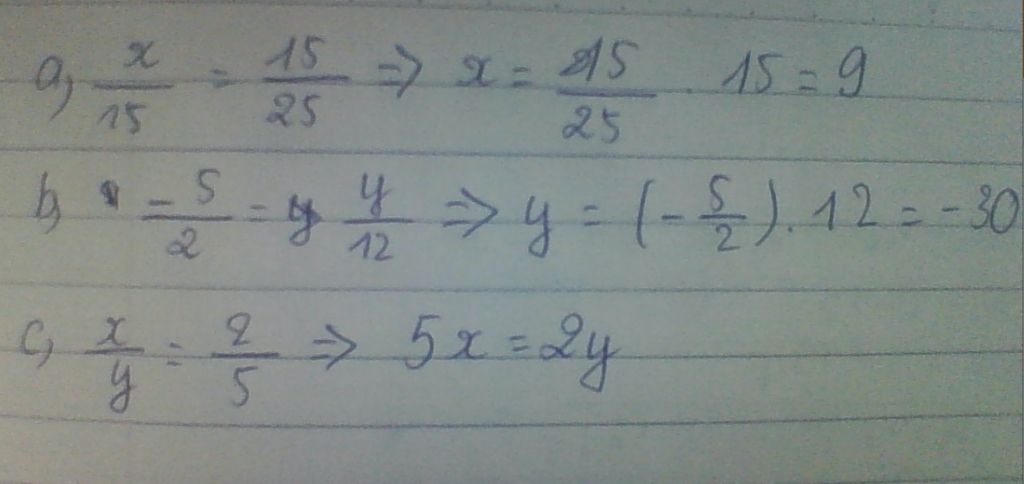 a, x/15 = 15/25 ⇒ x = 15/25 . 15 = 9
b, -5/2 = y/12 ⇒ y = (-5/2). 12 = -30
c, x/y = 2/5 ⇒ 5x = 2y